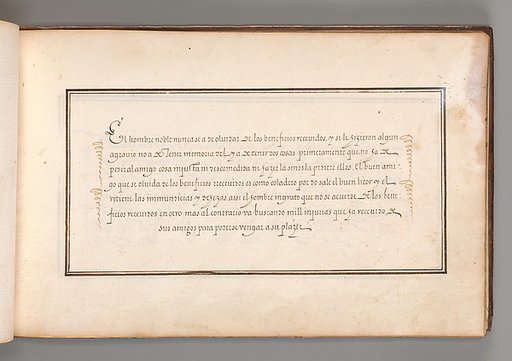 El hombre noble nunca se a de oluidar de los beneficios receuidos, y si le hizieron algun
agrauio no a de tener memoria del, y a de tener dos cosas primeramente que no ha de
pedir al amigo cosa injusta ni descomedida ni hazerla si nos la pidiere ellos. El buen ami-
go que se oluida de los beneficios receuidos es como coladero por do sale el buen licor y el
retiene las immundicias y hezas, assi el hombre ingrato que no se acuerda de los bene
ficios receuidos en otro mas al contrario va buscando mill injurias que ha receuido de
sus amigos para poderse vengar a su plazer